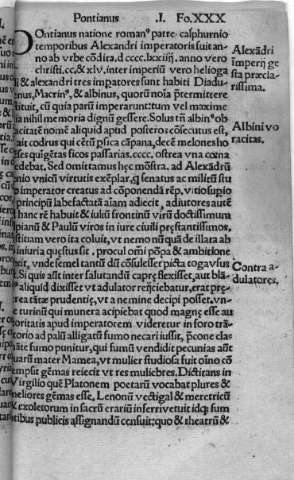 Pontianus .I. Fo.XXX
Pontianus natione roman⁹ patre calphurnio
temporibus Alexandri imperatoris fuit an-
no ab vrbe cōdita, d cccc.lxxxiiij, anno vero
christi.cc,& xlv, inter imperiū vero helioga
li & alexandri tres impatores sunt habiti Diadu
nus, Macrin⁹, & albinus, quorū noīa p̄termittere
buit, cū quia parū imperarunt: tum vel maxime
ia nihil memoria dignū gessere. Solus tn̄ albin⁹ ob
acitatē nomē aliquid apud posteros cōsecutus est,
ait codrus qui cētū psica cāpana, decē melones ho
ses quigētas ficos passarias.cccc, ostrea vna cœna
edebat, Sed omittamus hęc mōstra, ad Alexādrū
onio vnicū virtutis exēplar, q̄ senatus ac militū stu
p imperator creatus ad cōponendā rēp, vitio supio
principū labefactatā aīam adiecit, adiutores autē
hanc rē habuit & iuliū frontinū virū doctissimum
pianū & Paulū viros in iure ciuili p̄stantissimos,
stitiam vero ita coluit, vt nemo nūquā de illata ab
iniuria questus sit, procul omī pōpa & ambitione
xit, vnde semel tantū dū cōsul esset picta toga vius
Si quis asst inter salutandū caput flexisset, aut blā
aliquid dixisset vt adulator reijciebatur, erat pre
rea tātæ prudentię, vt a nemine decipi posset. vn-
e turinū qui munera acipiebat quod magnę esse au
toritatis apud imperatorem videretur in foro trā-
torio ad palū alligatū fumo necari iussit, p̄cone clas
āte fumo punitur, qui fumū vendidit pecunias aūt
quarū mater Mamea, vt mulier studiosa fuit oīno cō
tempsit gēmas reiecit vt res muliebres. Dictitans in
Virgilio quē Platonem poetarū vocabat plures &
meliores gēmas esse, Lenonū vectigal & meretricū
& exoletorum in sacrū erariū inferri vetuit idq; sum
tibus publicis assignandū censuit: quo & theatrū &
Alexādri
imperij ge
sta præcla-
rissima.
Albini vo
racitas.
Contra a-
dulatores.